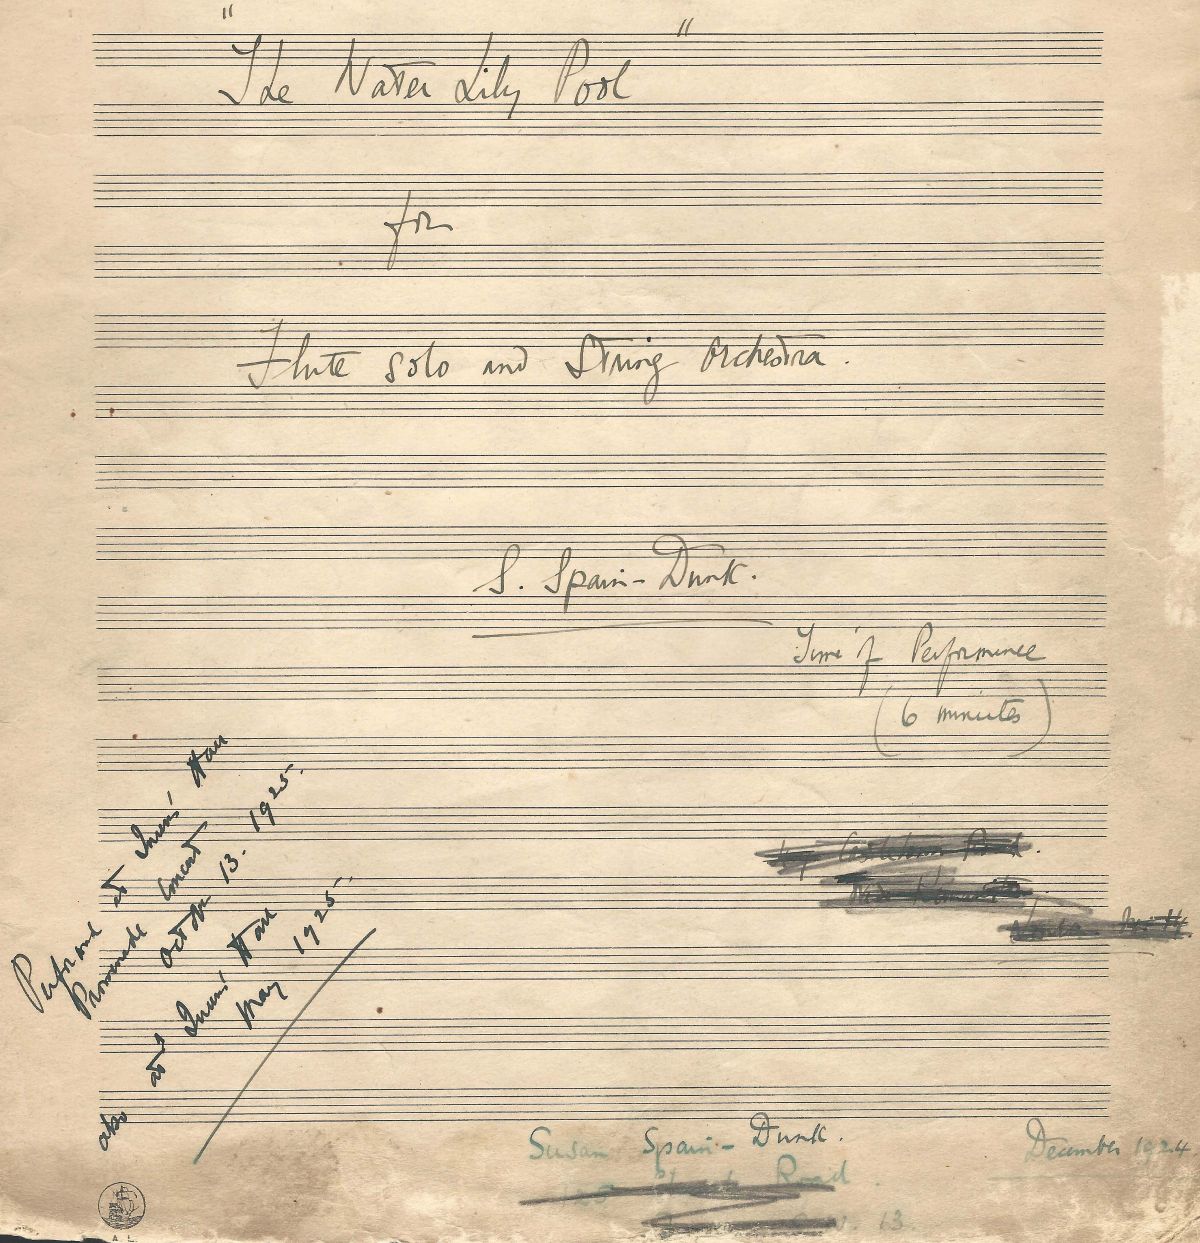 "The Water Lily Pool"
for
Flute solo and String Orchestra.
S. Spain-Dunk.
Time of Performance
(6 minutes)
Performed at Queen's Hall
Promenade Concert
October 13. 1925.
also at Queen's Hall
May 1925.
Castletown Road.
West Kensington
Susan Spain-Dunk.
December 1924
Road.
13.